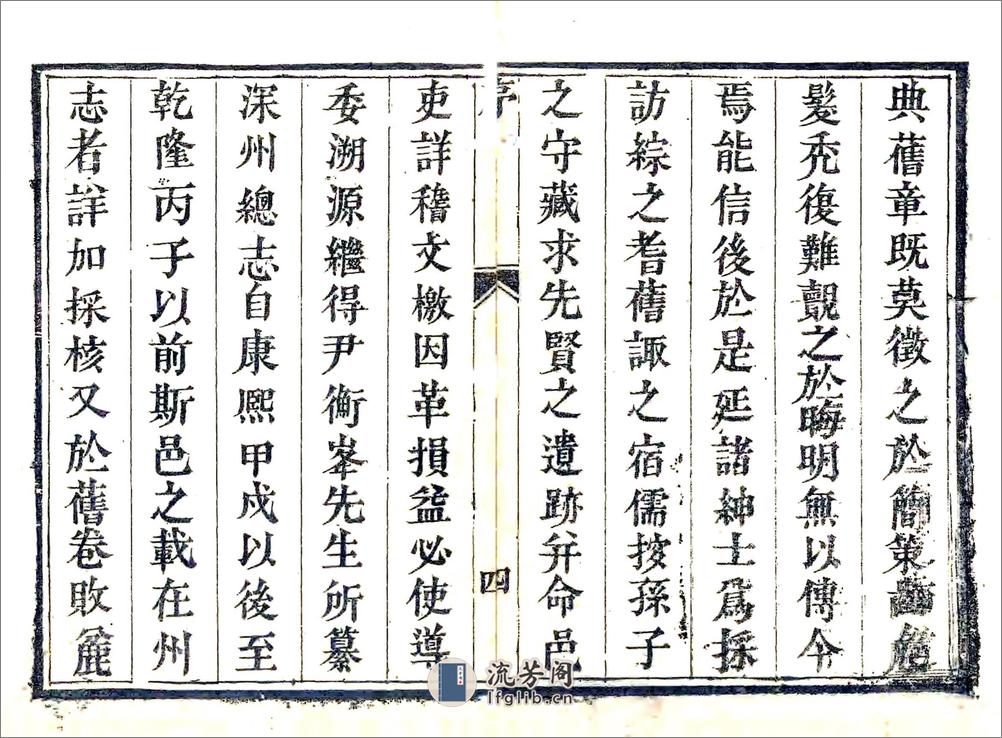 典舊章既莫徵之於簡策齒危
髮禿復難覿之於晦明無以傳今
焉能信後於是延諸紳士爲採
訪綜之耆舊諏之宿儒按孫子
之守藏求先賢之遺跡并命邑
序
四
吏詳稽文檄因革損益必使導
委溯源繼得尹衡峯先生所纂
深州總志自康熙甲戌以後至
乾隆丙子以前斯邑之載在州
志者詳加採核又於舊卷敗簏
流芳阁
lfglib.cn